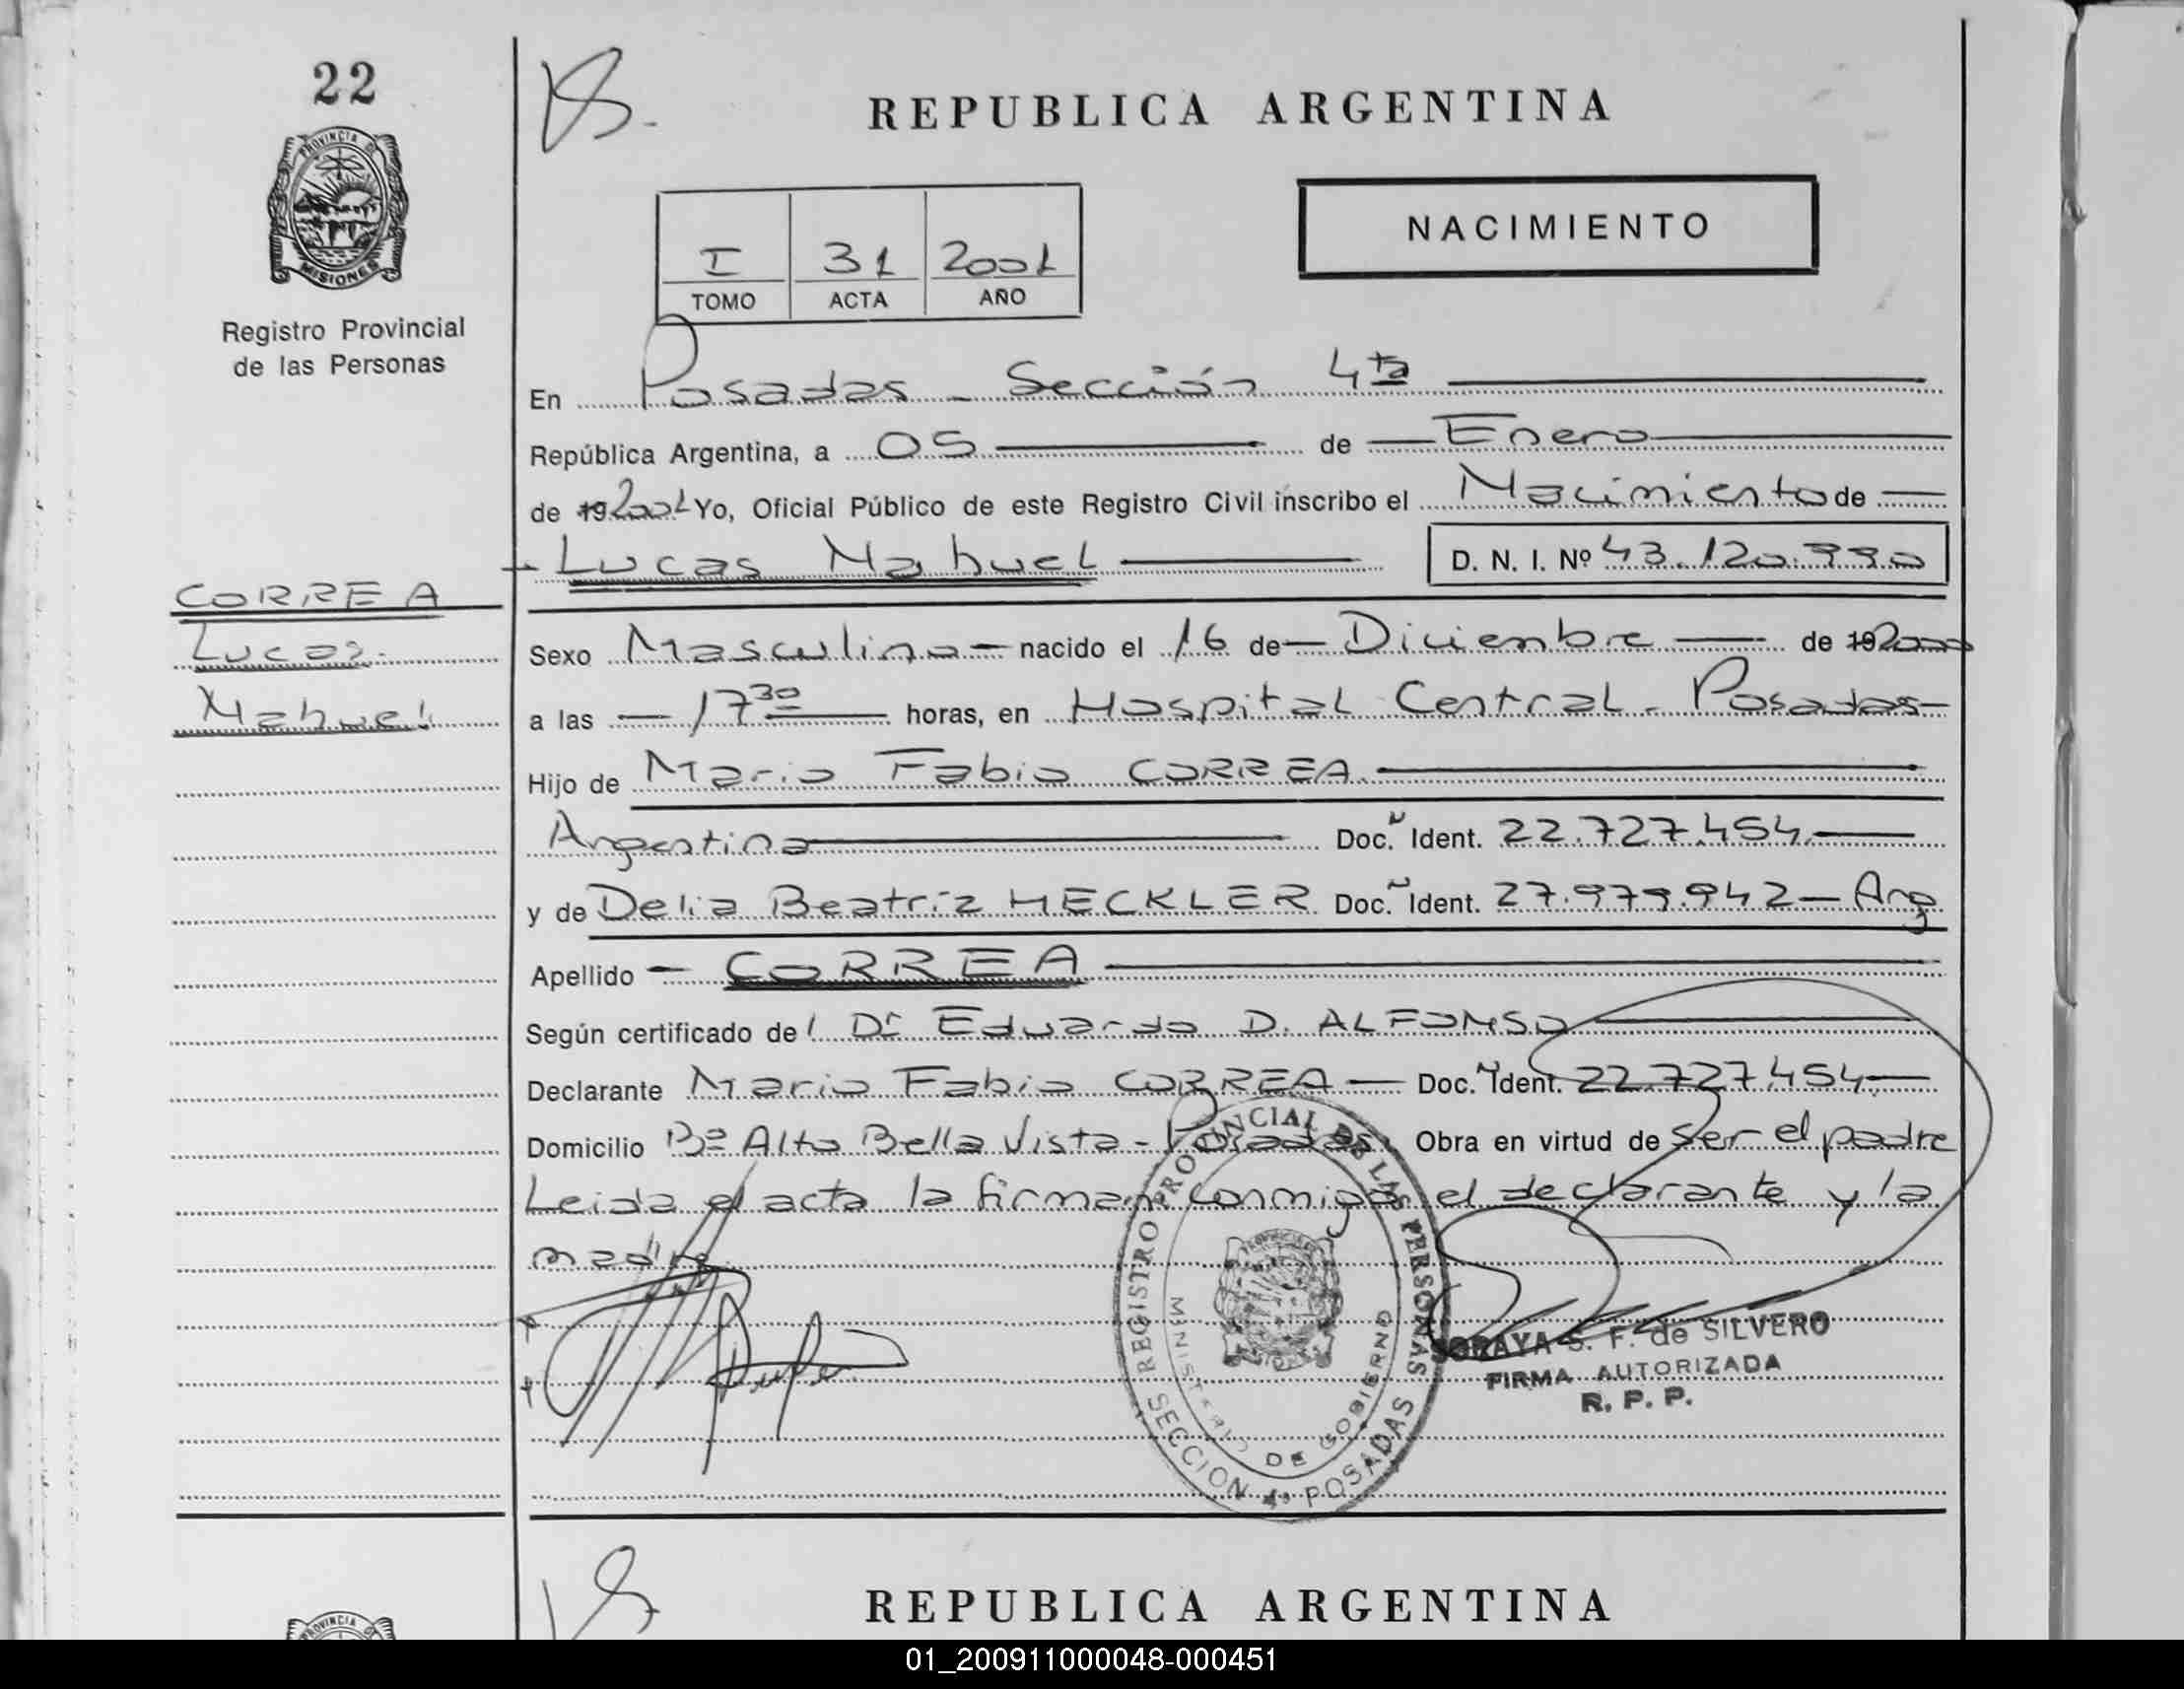 22
PROVINCIA DE
MISIONES
Registro Provincial
de las Personas
REPUBLICA ARGENTINA
NACIMIENTO
I 31 2001
TOMO ACTA AÑO
En Posadas - Sección 4ta
República Argentina, a 05 de Enero
de 19 2001 Yo, Oficial Público de este Registro Civil inscribo el Nacimiento de
Lucas Nahuel D. N. I. Nº 43.120.990
CORREA
Lucas
Nahuel
Sexo Masculino nacido el 16 de Diciembre de 19 2000
a las 17 30 horas, en Hospital Central - Posadas
Hijo de Mario Fabio CORREA
Argentino Doc. Ident. 22.727.454
y de Delia Beatriz HECKLER Doc. Ident. 27.979.942 - Arg
Apellido CORREA
Según certificado del Dr Eduardo D. ALFONSO
Declarante Mario Fabio CORREA Doc. Ident. 22.727.454
Domicilio Bº Alto Bella Vista - Posadas Obra en virtud de ser el padre
Leida el acta la firman conmigo el declarante y la
madre
REGISTRO PROVINCIAL DE LAS PERSONAS
MINISTERIO DE GOBIERNO
SECCION 4º POSADAS
SORAYA S. F. de SILVERO
FIRMA AUTORIZADA
R. P. P.
PROVINCIA
REPUBLICA ARGENTINA
01_200911000048-000451